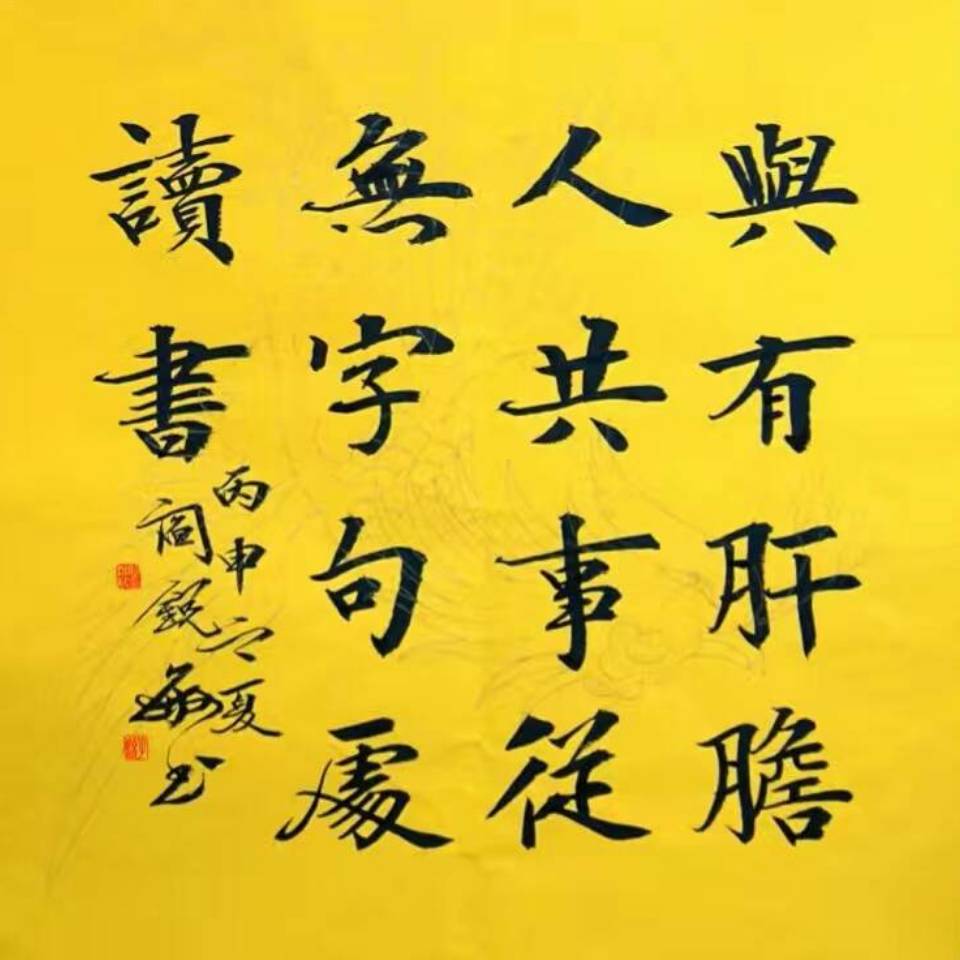 與有肝膽
人共事從
無字句處
讀書
丙申之夏
閻銳敏书